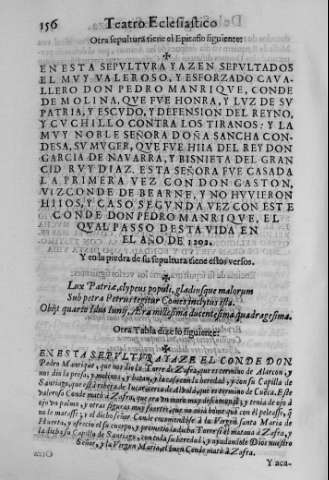 156 Teatro Eclesiastico
Otra sepultura tiene el Epitafio siguiente:
EN ESTA SEPVLTVRA YAZEN SEPVLTADOS
EL MVY VALEROSO, Y ESFORZADO CAVA-
LLERO DON PEDRO MANRIQVE, CONDE
DE MOLINA, QVE FVE HONRA, Y LVZ DE SV
PATRIA, Y ESCVDO, Y DEFENSION DEL REYNO,
Y CVCHILLO CONTRA LOS TIRANOS: Y LA
MVY NOBLE SEÑORA DOÑA SANCHA CON-
DESA, SV MVGER, QVE FVE HIIA DEL REY DON
GARCIA DE NAVARRA, Y BISNIETA DEL GRAN
CID RVY DIAZ. ESTA SEÑORA FVE CASADA
LA PRIMERA VEZ CON DON GASTON,
VIZCONDE DE BEARNE, Y NO HVVIERON
HIIOS, Y CASO SEGVNDA VEZ CON ESTE
CONDE DON PEDRO MANRIQVE, EL
QVAL PASSO DESTA VIDA EN
EL AÑO DE 1202.
Y en la piedra de su sepultura tiene estos versos.
Lux Patriæ, clypeus populi, gladiusque malorum
Sub petra Petrus tegitur Comes inclytus ista.
Obijt quarto Idus Iunij, Æra millesima ducentesima quadragesima.
Otra Tabla dize lo siguiente:
EN ESTA SEPVLTVRA YAZE EL CONDE DON
Pedro Manrique, que nos diò la Torre de Zafra, que es termino de Alarcon, y
nos diò la presa, y molinos, y
Santiago, que està ribera de
Conde matò à Zafra, que era un moro muy
ojo un palmo, y otras figuras muy
no le matasse; y el dicho señor Conde encomendòse à la Virgen Santa Maria de
Huerta, y ofreciò el su cuerpo, y prometiò dar la Torre si el matava à Zafra, y
la dicha su Capilla de Santiago, con toda su heredad; y ayudandole Dios nuestro
Señor, y la Virgen Maria, el buen Conde matò à Zafra.
Y aca-